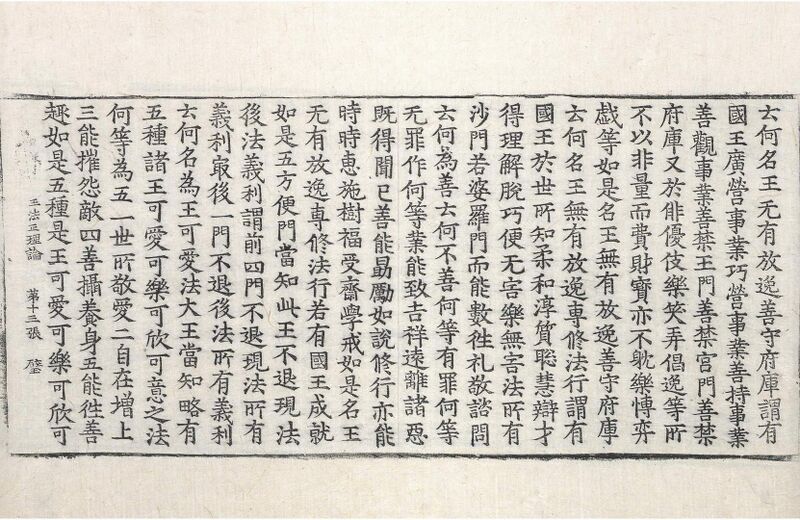 云何名王无有放逸善守府庫謂有
國王廣營事業巧營事業善持事業
善觀事業善禁王門善禁宮門善禁
府庫又於俳優伎樂笑弄倡逸等所
不以非量而費財寳亦不躭樂愽弈
戯等如是名王無有放逸善守府庫
云何名王無有放逸専修法行謂有
國王於世所知柔和淳質聡慧辯才
得理解脫巧便无害樂無害法所有
沙門若婆羅門而能數徃礼敬諮問
云何為善云何不善何等有罪何等
无罪作何等業能致吉祥遠離諸惡
既得聞已善能勗勵如說修行亦能
時時惠施樹福受齋學戒如是名王
无有放逸専修法行若有國王成就
如是五方便門當知此王不退現法
後法義利謂前四門不退現法所有
義利㝡後一門不退後法所有義利
云何名為王可愛法大王當知略有
五種諸王可愛可樂可欣可意之法
何等為五一世所敬愛二自在增上
三能摧怨敵四善攝養身五能徃善
趣如是五種是王可愛可樂可欣可
王法正理論 苐十三張 璧